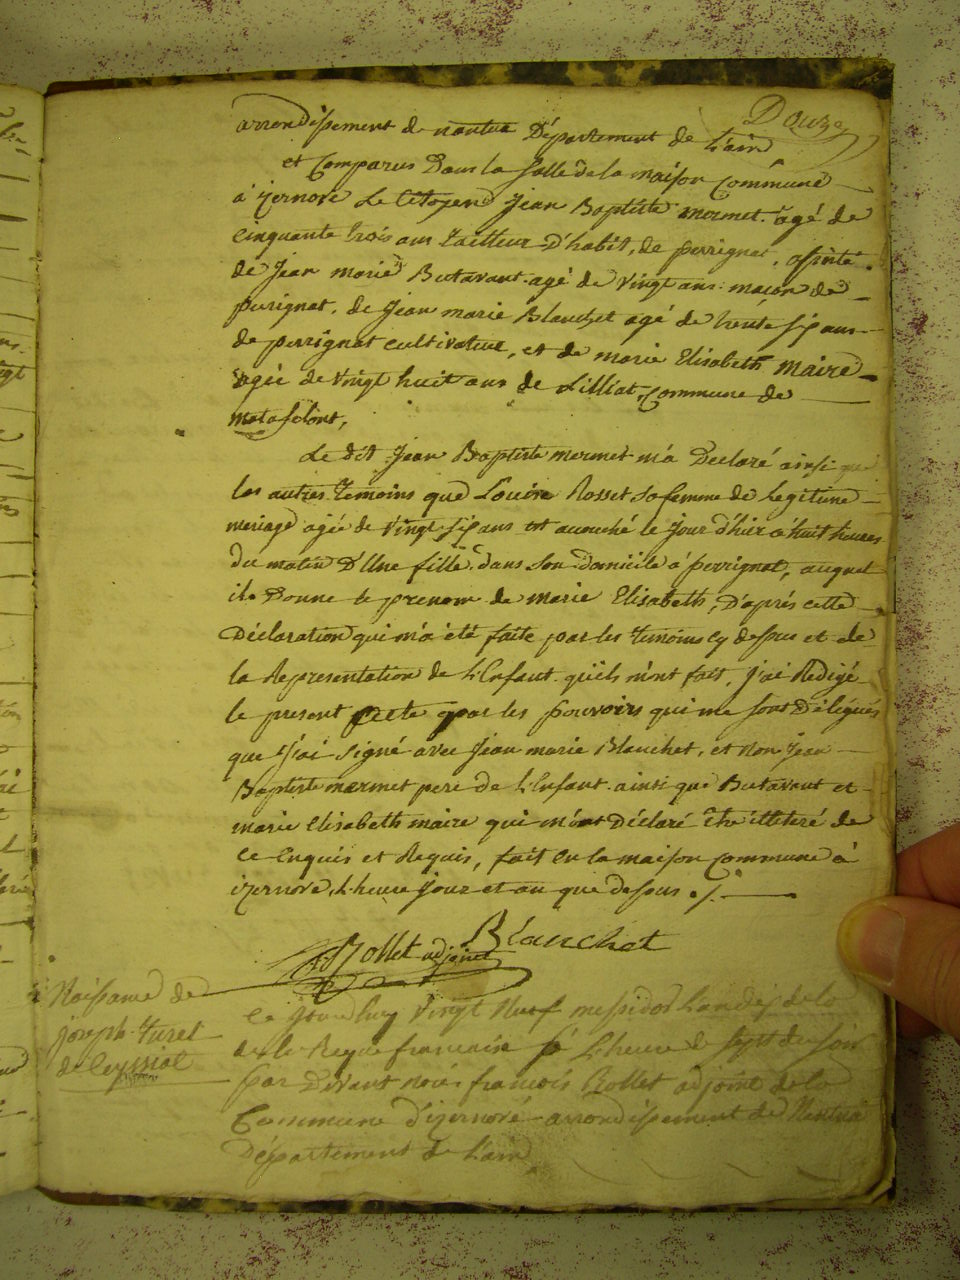 Douze
arrondissement de nantua Département de L'ain
et Comparus Dans la salle de la maison Commune
à izernore Le Citoyen Jean Baptiste mermet agé de
Cinquante trois ans tailleur D'habit, de perrignat, assisté
de Jean marie Butavant agé de vingt ans maçon de
perrignat, de Jean marie Blanchet agé de trente six ans
de perrignat cultivateur, et de marie Elisabeth Maire
agée de vingt huit ans de Lilliat, Commune de
matafelont,
Le dit Jean Baptiste mermet m'a Declaré ainsi que
les autres temoins que Louise Rosset sa femme de Legitime
mariage agée de vingt six ans est accouché le jour d'hier à huit heures
du matin D'Une fille dans son domicile à perrignat, auquel
il Donne le prenom de marie Elisabeth, D'après cette
Déclaration qui m'a été faite par les temoins cy dessus et de
la Representation de L'Enfant qu'ils m'ont fait, j'ai Redigé
le present acte par les pouvoirs qui me sont Délégués
que j'ai signé avec Jean marie Blanchet, et non Jean
Baptiste mermet pere de L'Enfant ainsi que Butavant et
marie Elisabeth maire qui m'ont Déclaré être illiteré de
Ce Enquis et Requis, fait En la maison Commune à
izernore, L'heure jour et an que dessus ./.
Rollet adjoint Blanchet
Naissance de
joseph Turel
de Ceyssiat
Ce jourd'huy Vingt Neuf messidor L'an dix de la
de la Repque francaise à L'heure de sept du soir
par Devant moi françois Rollet adjoint de la
Commune d'izernore arrondissement de Nantua
Département de L'ain